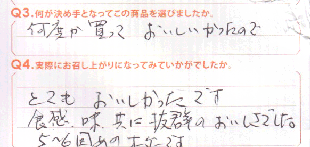 Q3.何が決め手となってこの商品を選びましたか。
何度か買って おいしかったので
Q4.実際にお召し上がりになってみていかがでしたか。
とても おいしかったです
食感、味、共に抜群のおいしさでした。
5〜6回めの